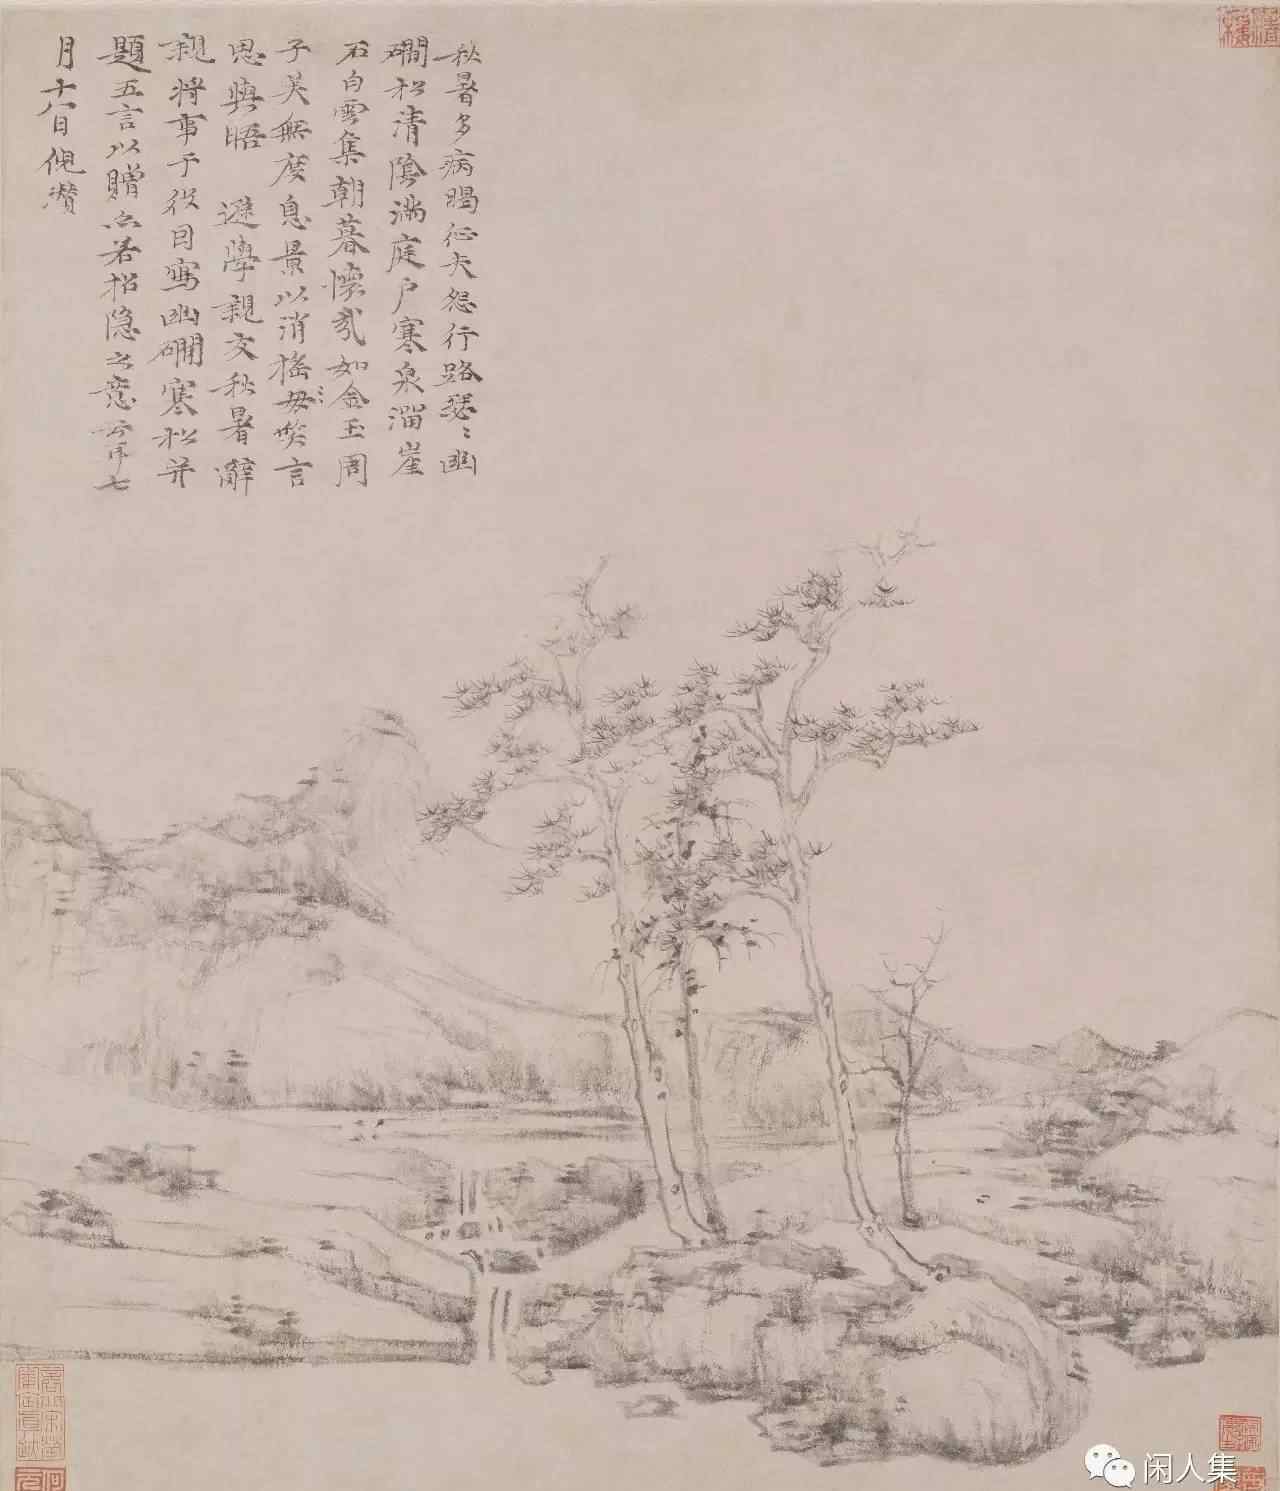 秋暑多病暍征夫怨行路瑟〻幽
磵松清陰滿庭戶寒泉溜崖
石白雲集朝暮懷哉如金玉周
子美無度息景以消搖毋𠲒言
思與晤　遜學親友秋暑辭
親將事于役因寫幽磵寒松并
題五言以贈亦若招隱之意云耳七
月十八日倪瓚
闲人集